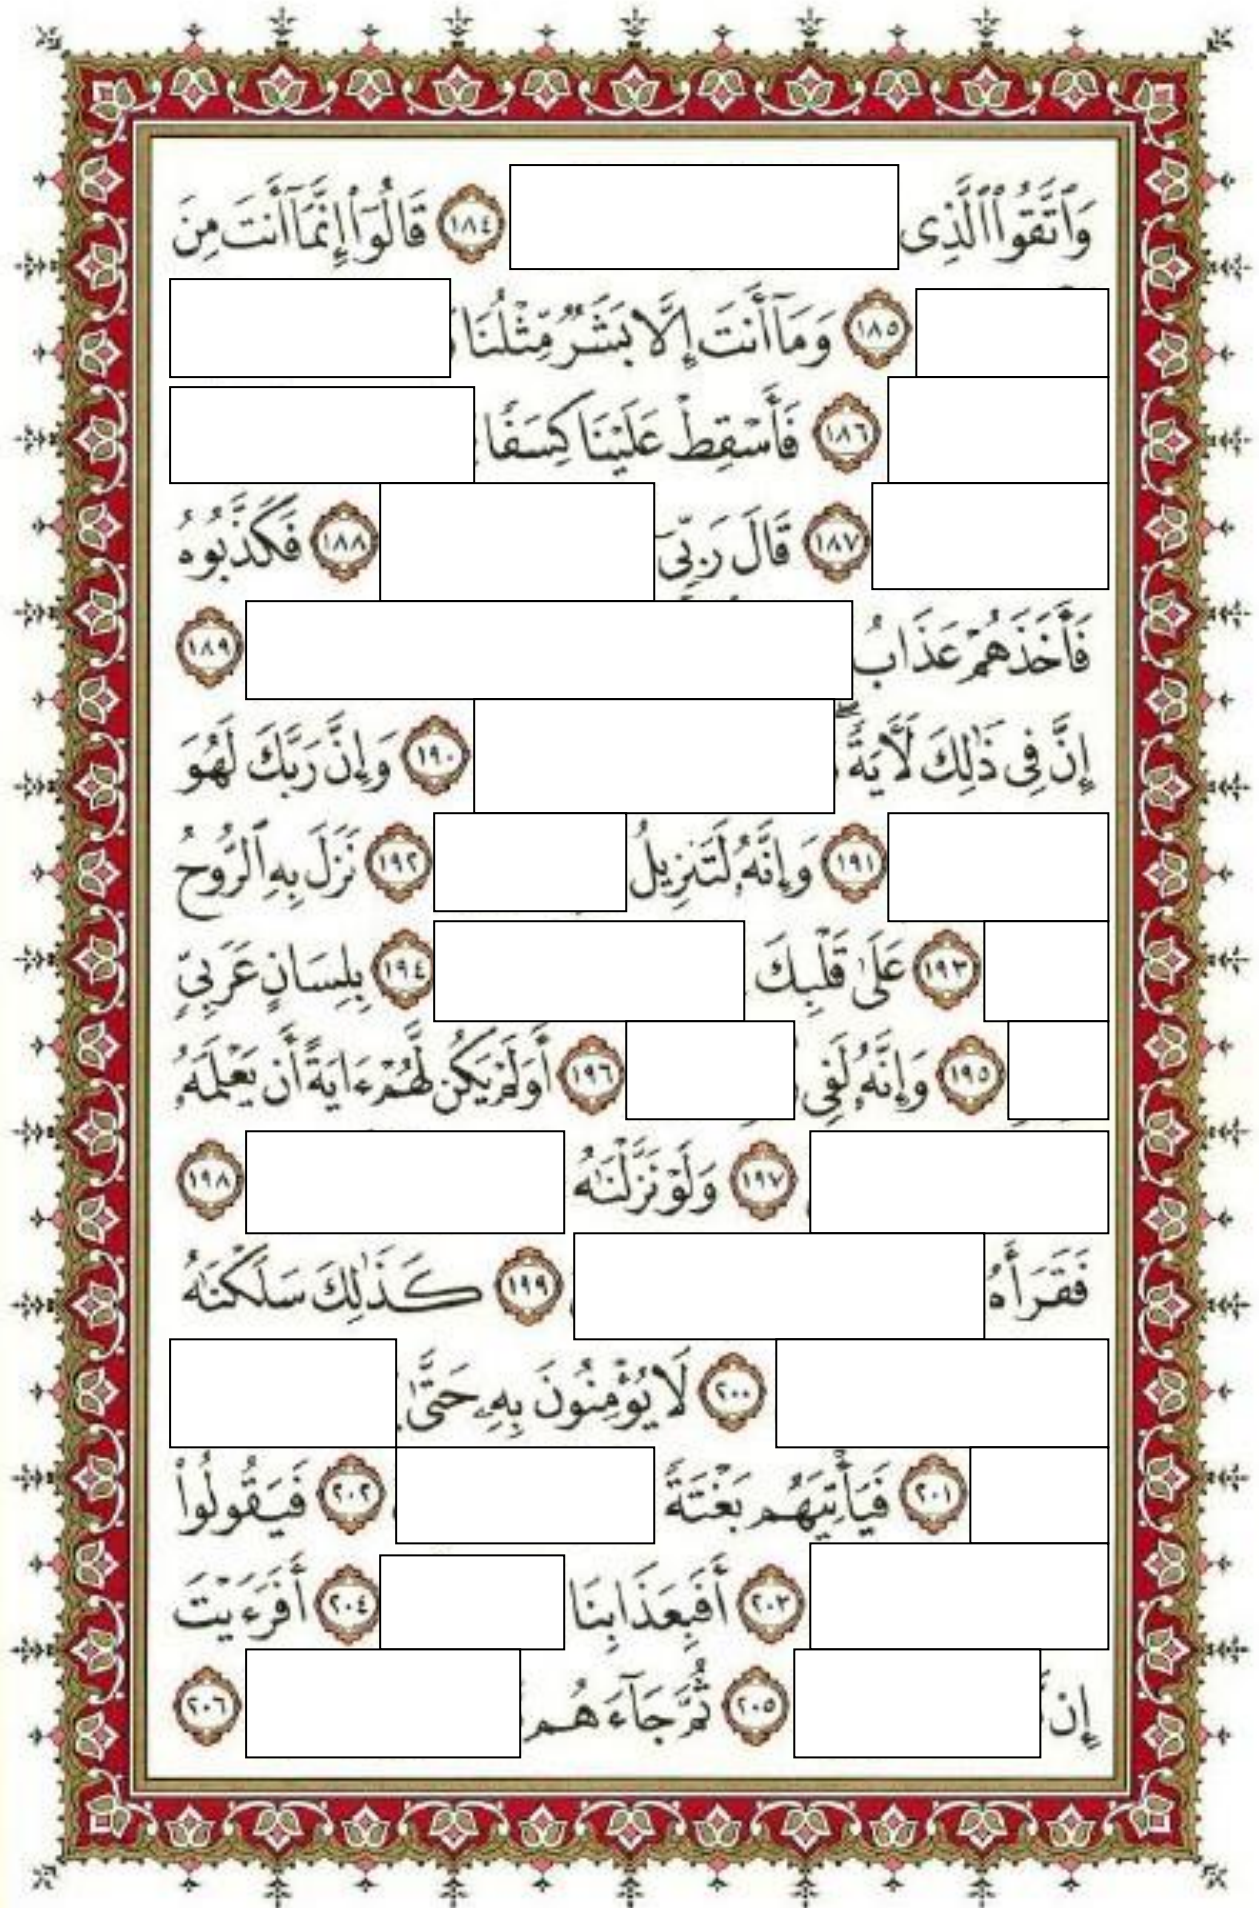 وَٱتَّقُوا۟ ٱلَّذِى ١٨٤ قَالُوٓا۟ إِنَّمَآ أَنتَ مِنَ
١٨٥ وَمَآ أَنتَ إِلَّا بَشَرٌ مِّثْلُنَا
١٨٦ فَأَسْقِطْ عَلَيْنَا كِسَفًا
١٨٧ قَالَ رَبِّىٓ ١٨٨ فَكَذَّبُوهُ
فَأَخَذَهُمْ عَذَابُ ١٨٩
إِنَّ فِى ذَٰلِكَ لَـَٔايَةً ۖ ١٩٠ وَإِنَّ رَبَّكَ لَهُوَ
١٩١ وَإِنَّهُۥ لَتَنزِيلُ ١٩٢ نَزَلَ بِهِ ٱلرُّوحُ
١٩٣ عَلَىٰ قَلْبِكَ ١٩٤ بِلِسَانٍ عَرَبِىٍّ
١٩٥ وَإِنَّهُۥ لَفِى ١٩٦ أَوَلَمْ يَكُن لَّهُمْ ءَايَةً أَن يَعْلَمَهُۥ
١٩٧ وَلَوْ نَزَّلْنَـٰهُ ١٩٨
فَقَرَأَهُۥ ١٩٩ كَذَٰلِكَ سَلَكْنَـٰهُ
٢٠٠ لَا يُؤْمِنُونَ بِهِۦ حَتَّىٰ
٢٠١ فَيَأْتِيَهُم بَغْتَةً ٢٠٢ فَيَقُولُوا۟
٢٠٣ أَفَبِعَذَابِنَا ٢٠٤ أَفَرَءَيْتَ
إِن ٢٠٥ ثُمَّ جَآءَهُم ٢٠٦